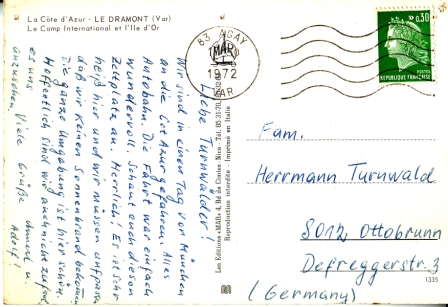 La Côte d'Azur - LE DRAMONT (Var)
Le Camp International et l'Ile d'Or
83 AGAY
1972
VAR
0,30
POSTES
Liebe Turnwalder!
Wir sind in einem Tag von München
an die Cot Azur gefahren. Alles
Autobahn. Die Fahrt war einfach
wundervoll. Schaut euch diesen
Zeltplatz an. Herrlich! Es ist sehr
heiß hier und wir müssen aufpassen
daß wir keinen Sonnenbrand bekommen
Die ganze Umgebung ist hier schön.
Hoffentlich sind wir auch nicht zu
es uns
anzusehen. Viele Grüße
Adolf!
Les Editions «MAR» 4, Bd de Cimiez - Nice - Tél. 85-31-70
Reproduction interdite - Imprimé en Italie
Fam.
Herrmann Turnwald
8012 Ottobrunn
Defreggerstr. 3
(Germany)
1335